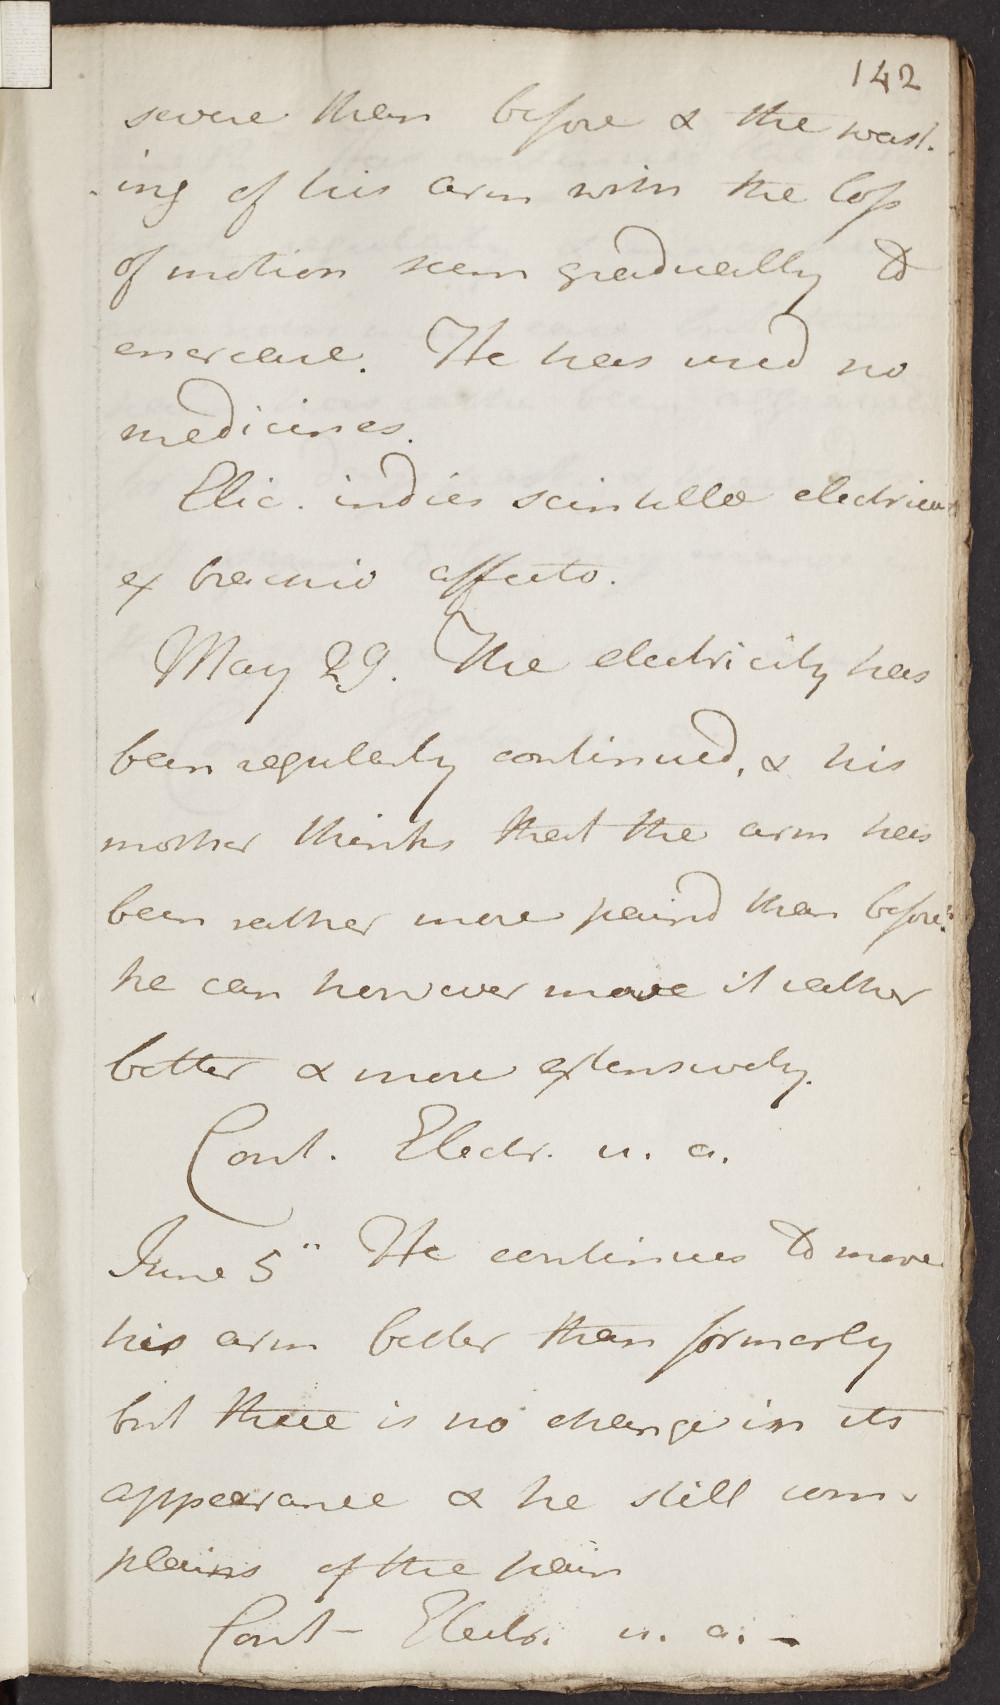 142
severe than before & the wast-
-ing of his arm with the loss
of motion seem gradually to
encrease. He has used no
medicines.
Elic. indies scintillæ electricæ
ex brachio affecto.
May 29. The electricity has
been regularly continued, & his
mother thinks that the arm has
been rather more pained than before:
he can however move it rather
better & more extensively.
Cont. Electr. u. a.
June 5" He continues to move
his arm better than formerly
but there is no change in its
appearance & he still com-
plains of the pain
Cont - Electr. u. a. -